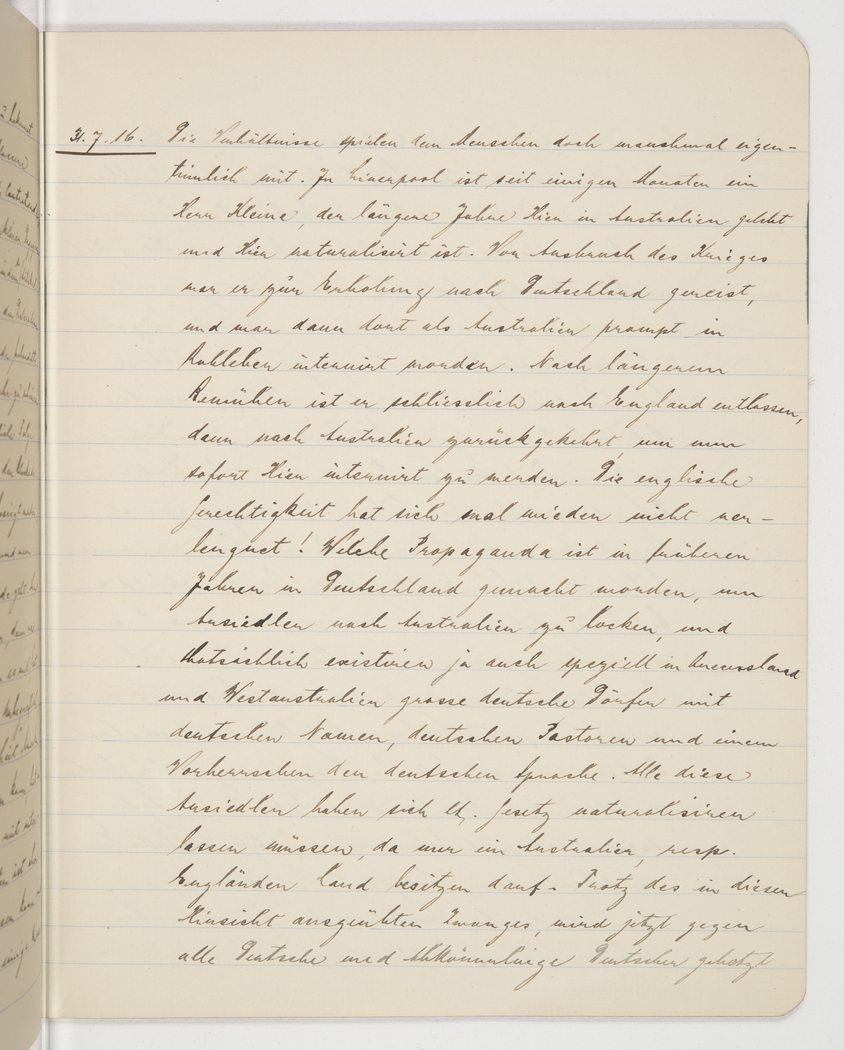 31.7.16. Die Verhältnisse spielen dem Menschen doch manchmal eigen-
tümlich mit. In Liverpool ist seit einigen Monaten ein
Herr Kleine, der längere Jahre Hier in Australien gelebt
und Hier naturalisirt ist. Vor Ausbruch des Krieges
war er zur Erholung nach Deutschland gereist,
und war dann dort als Australier prompt in
Ruhleben internirt worden. Nach längerem
Bemühen ist er schliesslich nach England entlassen,
dann nach Australien zurückgekehrt, um nun
sofort Hier internirt zu werden. Die englische
Gerechtigkeit hat sich mal wieder nicht ver-
leugnet! Welche Propaganda ist in früheren
Jahren in Deutschland gemacht worden, um
Ansiedler nach Australien zu locken, und
thatsächlich existiren ja auch speziell in Queensland
und Westaustralien grosse deutsche Dörfer mit
deutschen Namen, deutschen Pastoren und einem
Vorherrschen der deutschen Sprache. Alle diese
Ansiedler haben sich lt. Gesetz naturalisiren
lassen müssen, da nur ein Australier, resp.
Engländer Land besitzen darf. Trotz des in dieser
Hinsicht ausgeübten Zwanges, wird jetzt gegen
alle Deutsche und Abkömmlinge Deutscher gehetzt